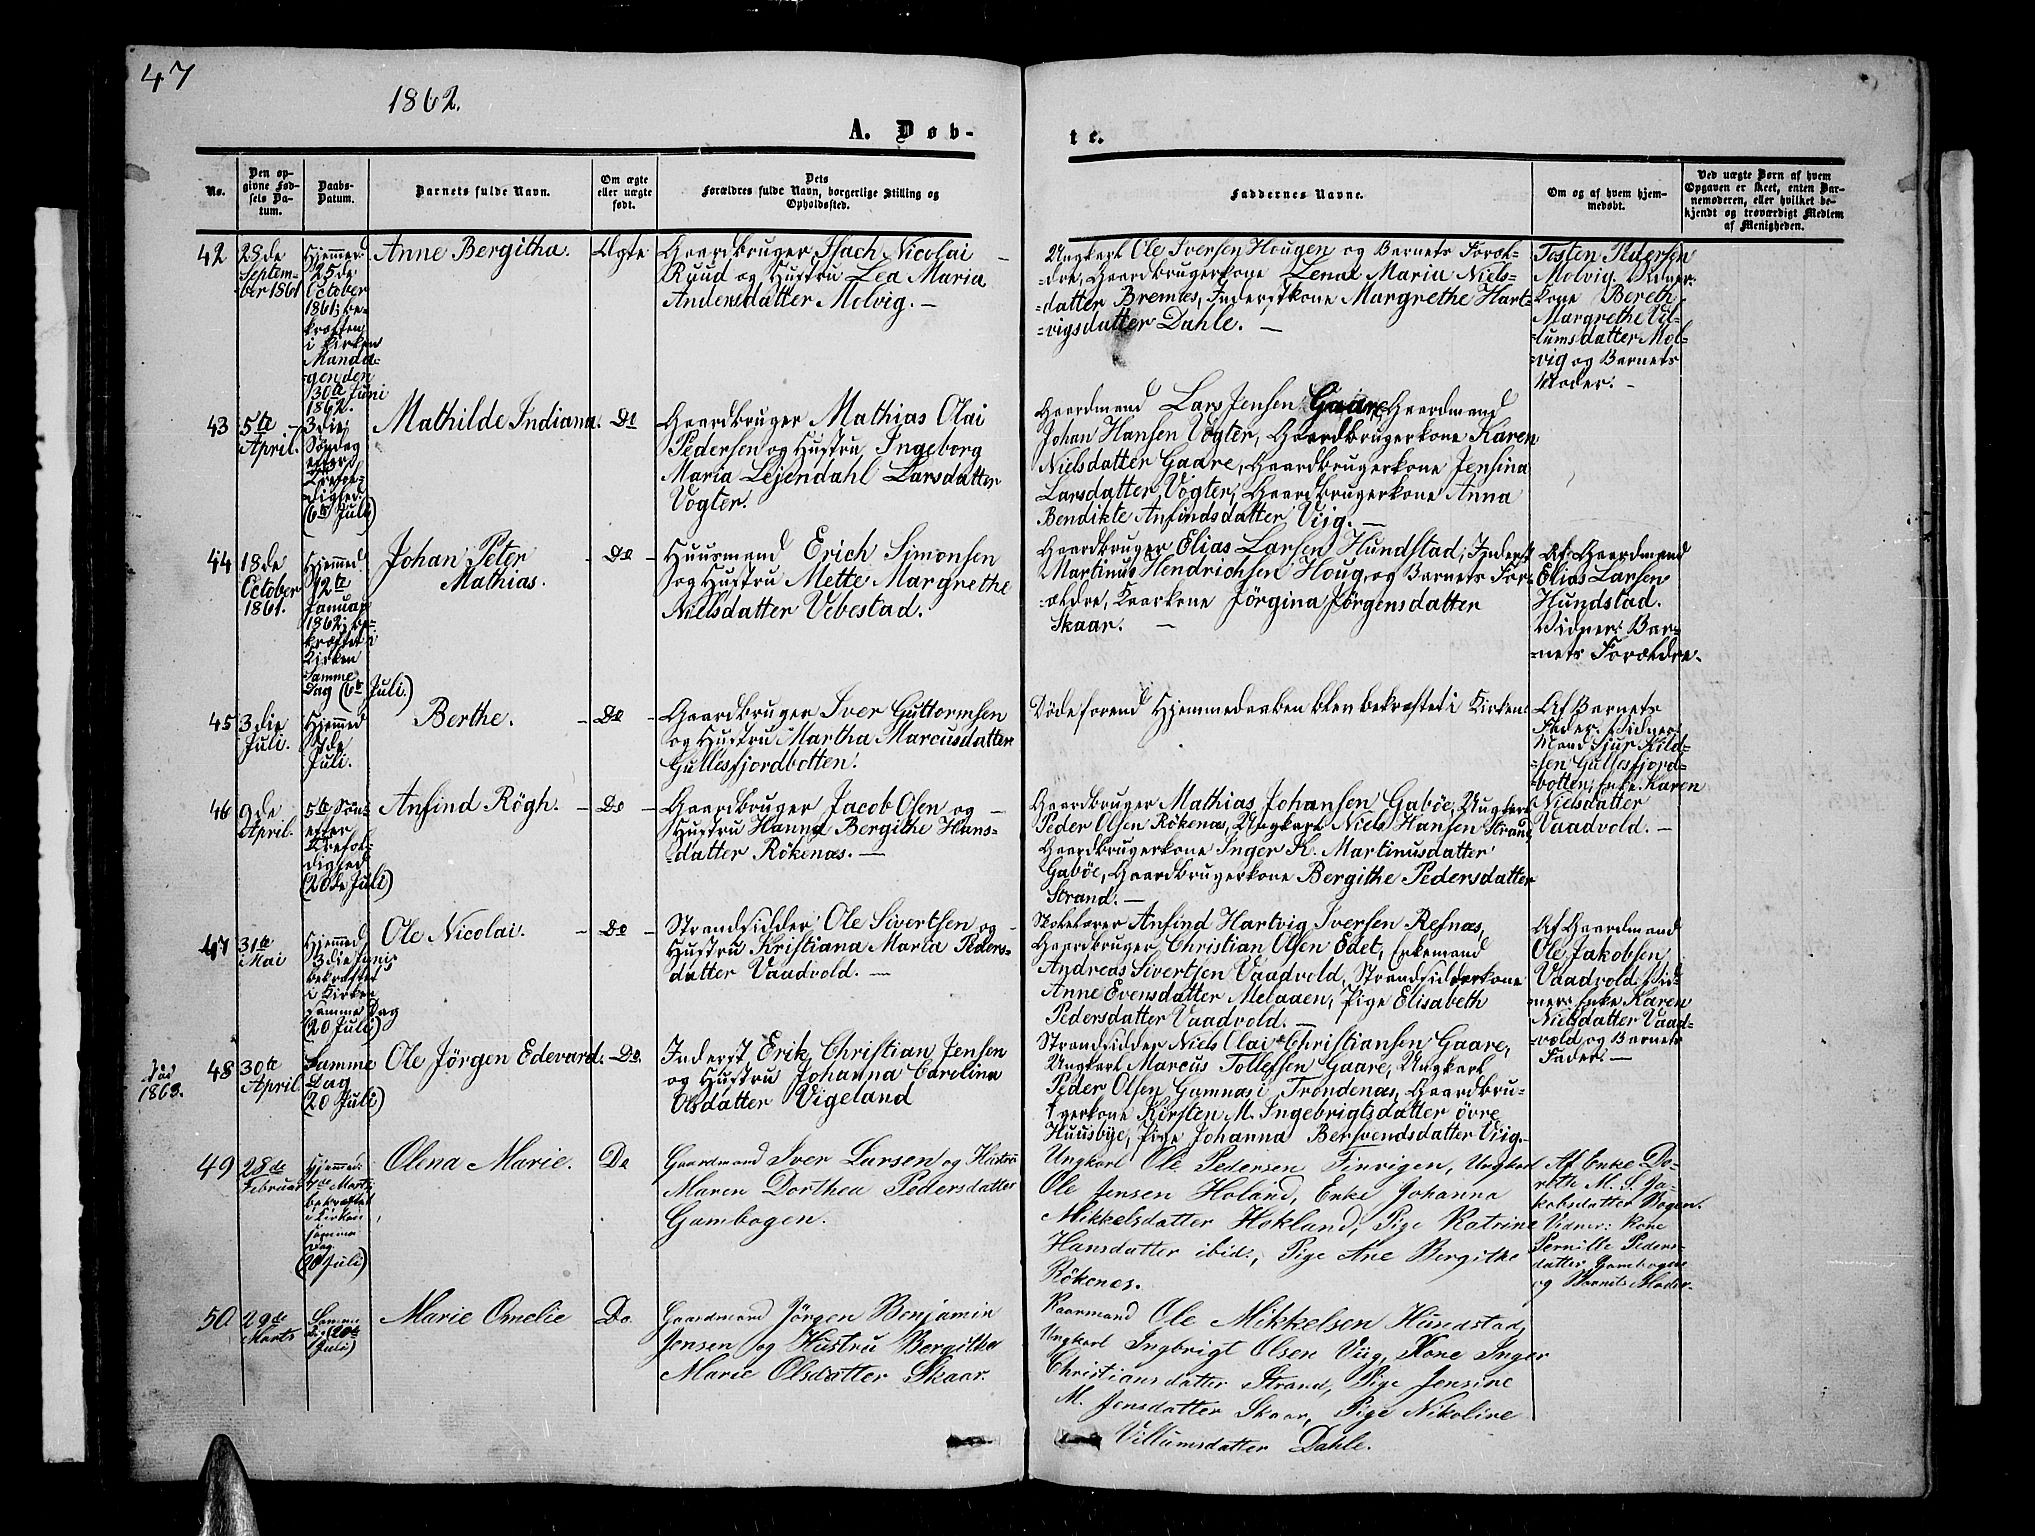 47
1862.
A. Døb-
te.
No.
Den op-
givne Fød-
sels Da-
tum.
Daabs-
Datum.
Barnets fulde Navn.
Om ægte
eller uægte
født.
Dets
Forældres fulde Navn, borgerlige Stilling og
Opholdssted.
Faddernes Navne.
Om og af hvem hjem-
medøbt.
Ved uægte Børn af hvem
Opgaven er skeet, enten Bar-
nemoderen, eller hvilket be-
kjendt og troværdigt Medlem
af Menigheden.
42
28de
Septem-
ber 1861
Hjemmed.
25de
October
1861; be-
kræften
i Kirken
Manda-
gen den
30te Juni
1862.
Anne Bergitha.
Ægte
Gaardbruger Isach Nicolai
Ruud og Hustru Lea Maria
Andersdatter Molvig. —
Ungkarl Ole Iversen Hougen og Barnets Foræl-
dre, Gaardbrugerkone Lena Maria Niels-
datter Bremnes, Inderstkone Margrethe Hart-
vigsdatter Dahle. —
Tosten Pedersen
Molvig.
Kone Bereth
Margrethe Vil-
lumsdatter Mol-
vig og Barnets
Moder. —
43
5te
April.
3die
Søndag
efter
Trefol-
dighed
(6te Juli)
Mathilde Indiana.
Do
Gaardbruger Mathias Olai
Pedersen og Hustru Ingeborg
Maria Lejendahl Larsdatter
Vogter.
Gaardmand Lars Jensen Gaare, Gaardmand
Johan Hansen Vogter, Gaardbrugerkone Karen
Nielsdatter Gaare, Gaardbrugerkone Jensina
Larsdatter Vogter, Gaardbrugerkone Anna
Bendikte Anfindsdatter Viig. —
44
18de
October
1861.
Hjemmed
12te
Januar
1862; be-
kræftet i
Kirken
samme
Dag (6te Juli.)
Johan Peter
Mathias.
Do
Huusmand Erich Simonsen
og Hustru Mette Margrethe
Nielsdatter Vebestad.
Gaardbruger Elias Larsen Hundstad, Inderst
Martinus Hendrichsen Houg, og Barnets For-
ældre, Kaarkone Jörgina Jörgensdatter
Skaar. —
Af Gaardmand
Elias Larsen
Hundstad.
Vidner: Bar-
nets Forældre.
45
3die
Juli.
Hjemmed
Juli.
Berthe.
Do
Gaardbruger Iver Guttormsen
og Hustru Martha Marcusdatter
Gullesfjordbotten.
Döde forend Hjemmedaaben blev bekræftet i Kirken.
Af Barnets
Fader. Vidner:
Mand Sjur Kild-
sen Gullesfjord-
botten; Enke Karen
Nielsdatter
Vaadvold. —
46
9de
April.
5te Søn-
efter
Trefol-
dighed
(20de Juli)
Anfind Rögh.
Do
Gaardbruger Jacob Olsen og
Hustru Hanna Bergithe Hans-
datter Rökenæs. —
Gaardbruger Mathias Johansen Gaböe, Ungkarl
Peder Olsen Rökenæs, Ungkarl Niels Hansen Strand,
Gaardbrugerkone Inger K. Martinusdatter
Gaböe, Gaardbrugerkone Bergithe Pedersdatter
Strand. —
47
31te
Mai
Hjemmed
3die Juni;
bekræftet
i Kirken
samme Dag
(20 Juli)
Ole Nicolai.
Do
Strandsidder Ole Sivertsen og
Hustru Kristiana Maria Peders-
datter Vaadvold. —
Skolelærer Anfind Hartvig Iversen Refsnæs,
Gaardbruger Christian Olsen Edet, Enkemand
Andreas Sivertsen Vaadvold, Strandsidderkone
Anne Evensdatter Melaaen, Pige Elisabeth
Pedersdatter Vaadvold. —
Af Gaardmand
Ole Jakobsen
Vaadvold. Vid-
ner: Enke Karen
Nielsdatter Vaad-
vold og Barnets
Fader. —
Död
1863.
48
30te
April
Samme
Dag
(20 Juli)
Ole Jörgen Edevard.
Do.
Inderst Erik Christian Jensen
og Hustru Johanna Carolina
Olsdatter Vigeland
Strandsidder Niels Olai Christiansen Gaare,
Ungkarl Marcus Tollefsen Gaare, Ungkarl
Peder Olsen Gamnæs i Trondenæs, Gaardbru-
gerkone Kirsten M. Ingebrigtsdatter övre
Huusbye, Pige Johanna Bersvendsdatter Viig.
49
28de
Februar
Hjemmed.
Marts
bekræftet
i Kirken
samme
Dag
(20 Juli)
Olena Marie.
Do
Gaardmand Iver Larsen og Hustru
Maren Dorthea Pedersdatter
Gambogen.
Ungkarl Ole Pedersen Finvigen, Ungkarl
Ole Jensen Holand, Enke Johanna
Mikkelsdatter Hokland, Pige Katrine
Hansdatter ibid., Pige Ane Bergithe
Rökenes.
Af Enke Do-
reth M. S. Ja-
kobsdatter Bogen.
Vidner: Kone
Pernille Peders-
datter Gambogen
og Barnets Moder.
50
29de
Marts
Samme
Dag (20de
Juli)
Marie Omelie
Do
Gaardmand Jörgen Benjamin
Jensen og Hustru Bergitha
Marie Olsdatter Skaar.
Kaarmand Ole Mikkelsen Hundstad,
Ungkarl Ingbrigt Olsen Viig, Kone Inger
Christiansdatter Strand, Pige Jensine
M. Jensdatter Skaar, Pige Nikoline
Villumsdatter Dahle.